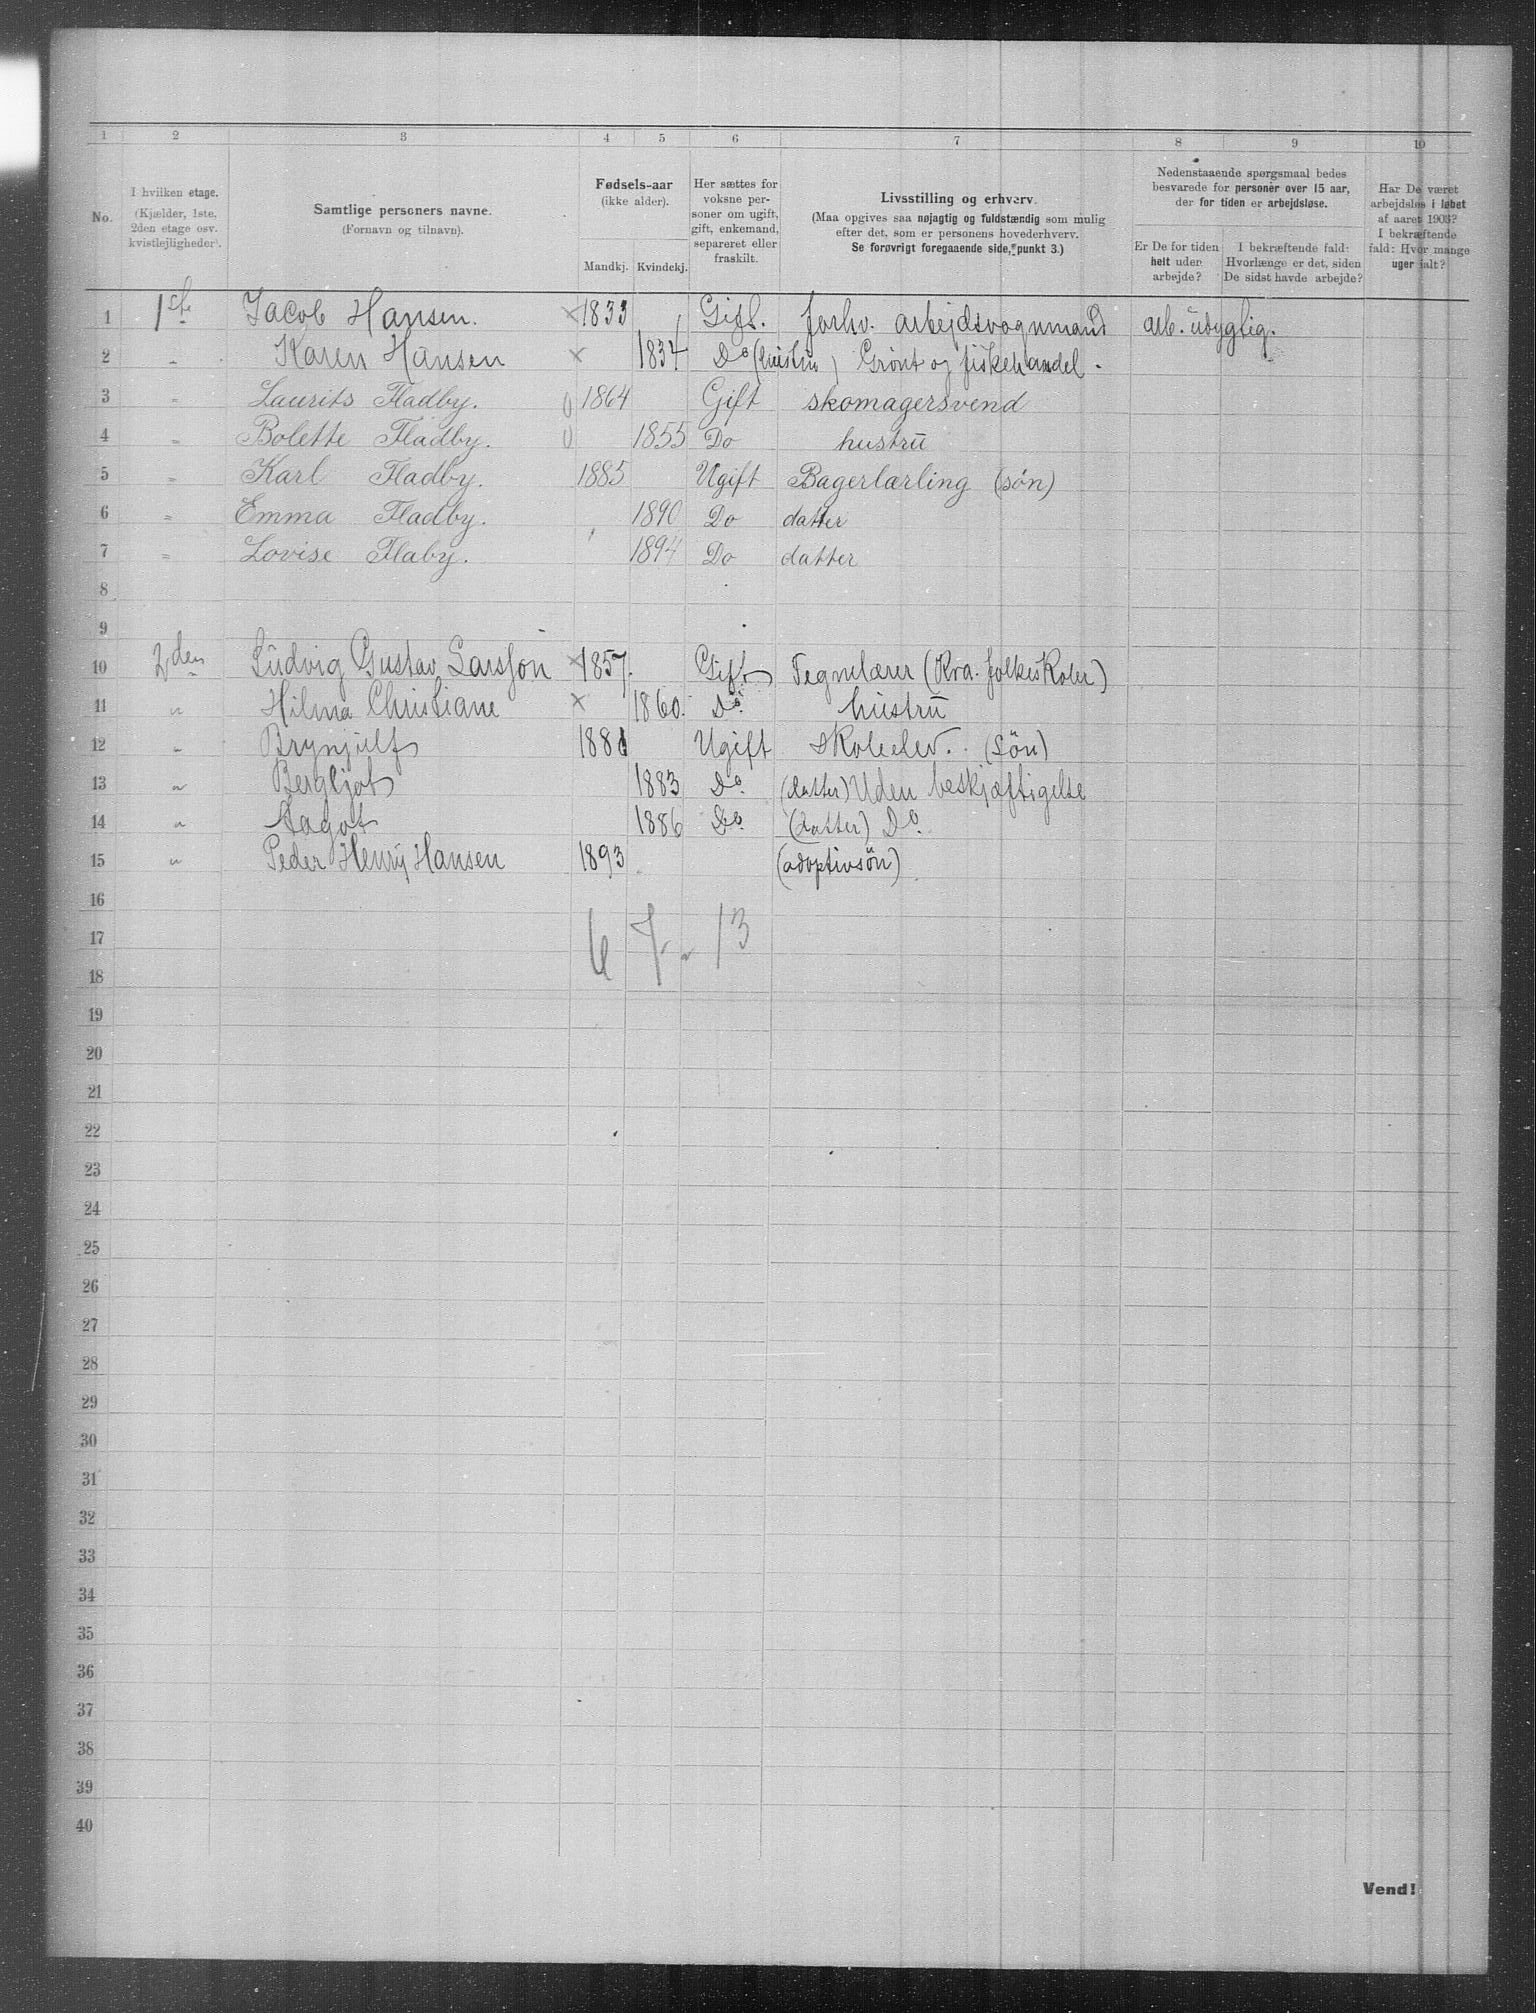 1 2 3 4 5 6 7 8 9 10
No.
I hvilken etage.
(Kjælder, 1ste,
2den etage osv.
kvistlejligheder).
Samtlige personers navne.
(Fornavn og tilnavn).
Fødsels-aar
(ikke alder).
Mandkj. Kvindekj.
Her sættes for
voksne per-
soner om ugift,
gift, enkemand,
separeret eller
fraskilt.
Livsstilling og erhverv.
(Maa opgives saa nøjagtig og fuldstændig som mulig
efter det, som er personens hovederhverv.
Se forøvrigt foregaaende side, punkt 3.)
Nedenstaaende spørgsmaal bedes
besvarede for personer over 15 aar,
der for tiden er arbejdsløse.
Er De for tiden
helt uden
arbejde?
I bekræftende fald:
Hvorlænge er det, siden
De sidst havde arbejde?
Har De været
arbejdsløs i løbet
af aaret 1903?
I bekræftende
fald: Hvor mange
uger ialt?
1 1ste Jacob Hansen. × 1833 Gift. forhv. arbejdsvognmand arb. udygtig.
2 " Karen Hansen × 1834 Do (hustru) Grønt og fiskehandel.
3 " Laurits Fladby. 0 1864 Gift skomagersvend
4 " Bolette Fladby. 0 1855 Do hustru
5 " Karl Fladby. 1885 Ugift Bagerlærling (søn)
6 " Emma Fladby. 1890 Do datter
7 " Lovise Flaby. 1894 Do datter
8
9
10 2den Ludvig Gustav Larsson × 1857. Gift Tegnelærer (Kra. folkeskoler)
11 " Hilma Christiane × 1860. Do. hustru
12 " Brynjulf 1881 Ugift Skoleelev. (Søn)
13 " Bergljot 1883 Do. (datter) Uden beskjæftigelse
14 " Aagot 1886 Do. (datter) Do.
15 " Peder Henry Hansen 1893 (adoptivsøn)
16
17 6 7 - 13
18
19
20
21
22
23
24
25
26
27
28
29
30
31
32
33
34
35
36
37
38
39
40
Vend!